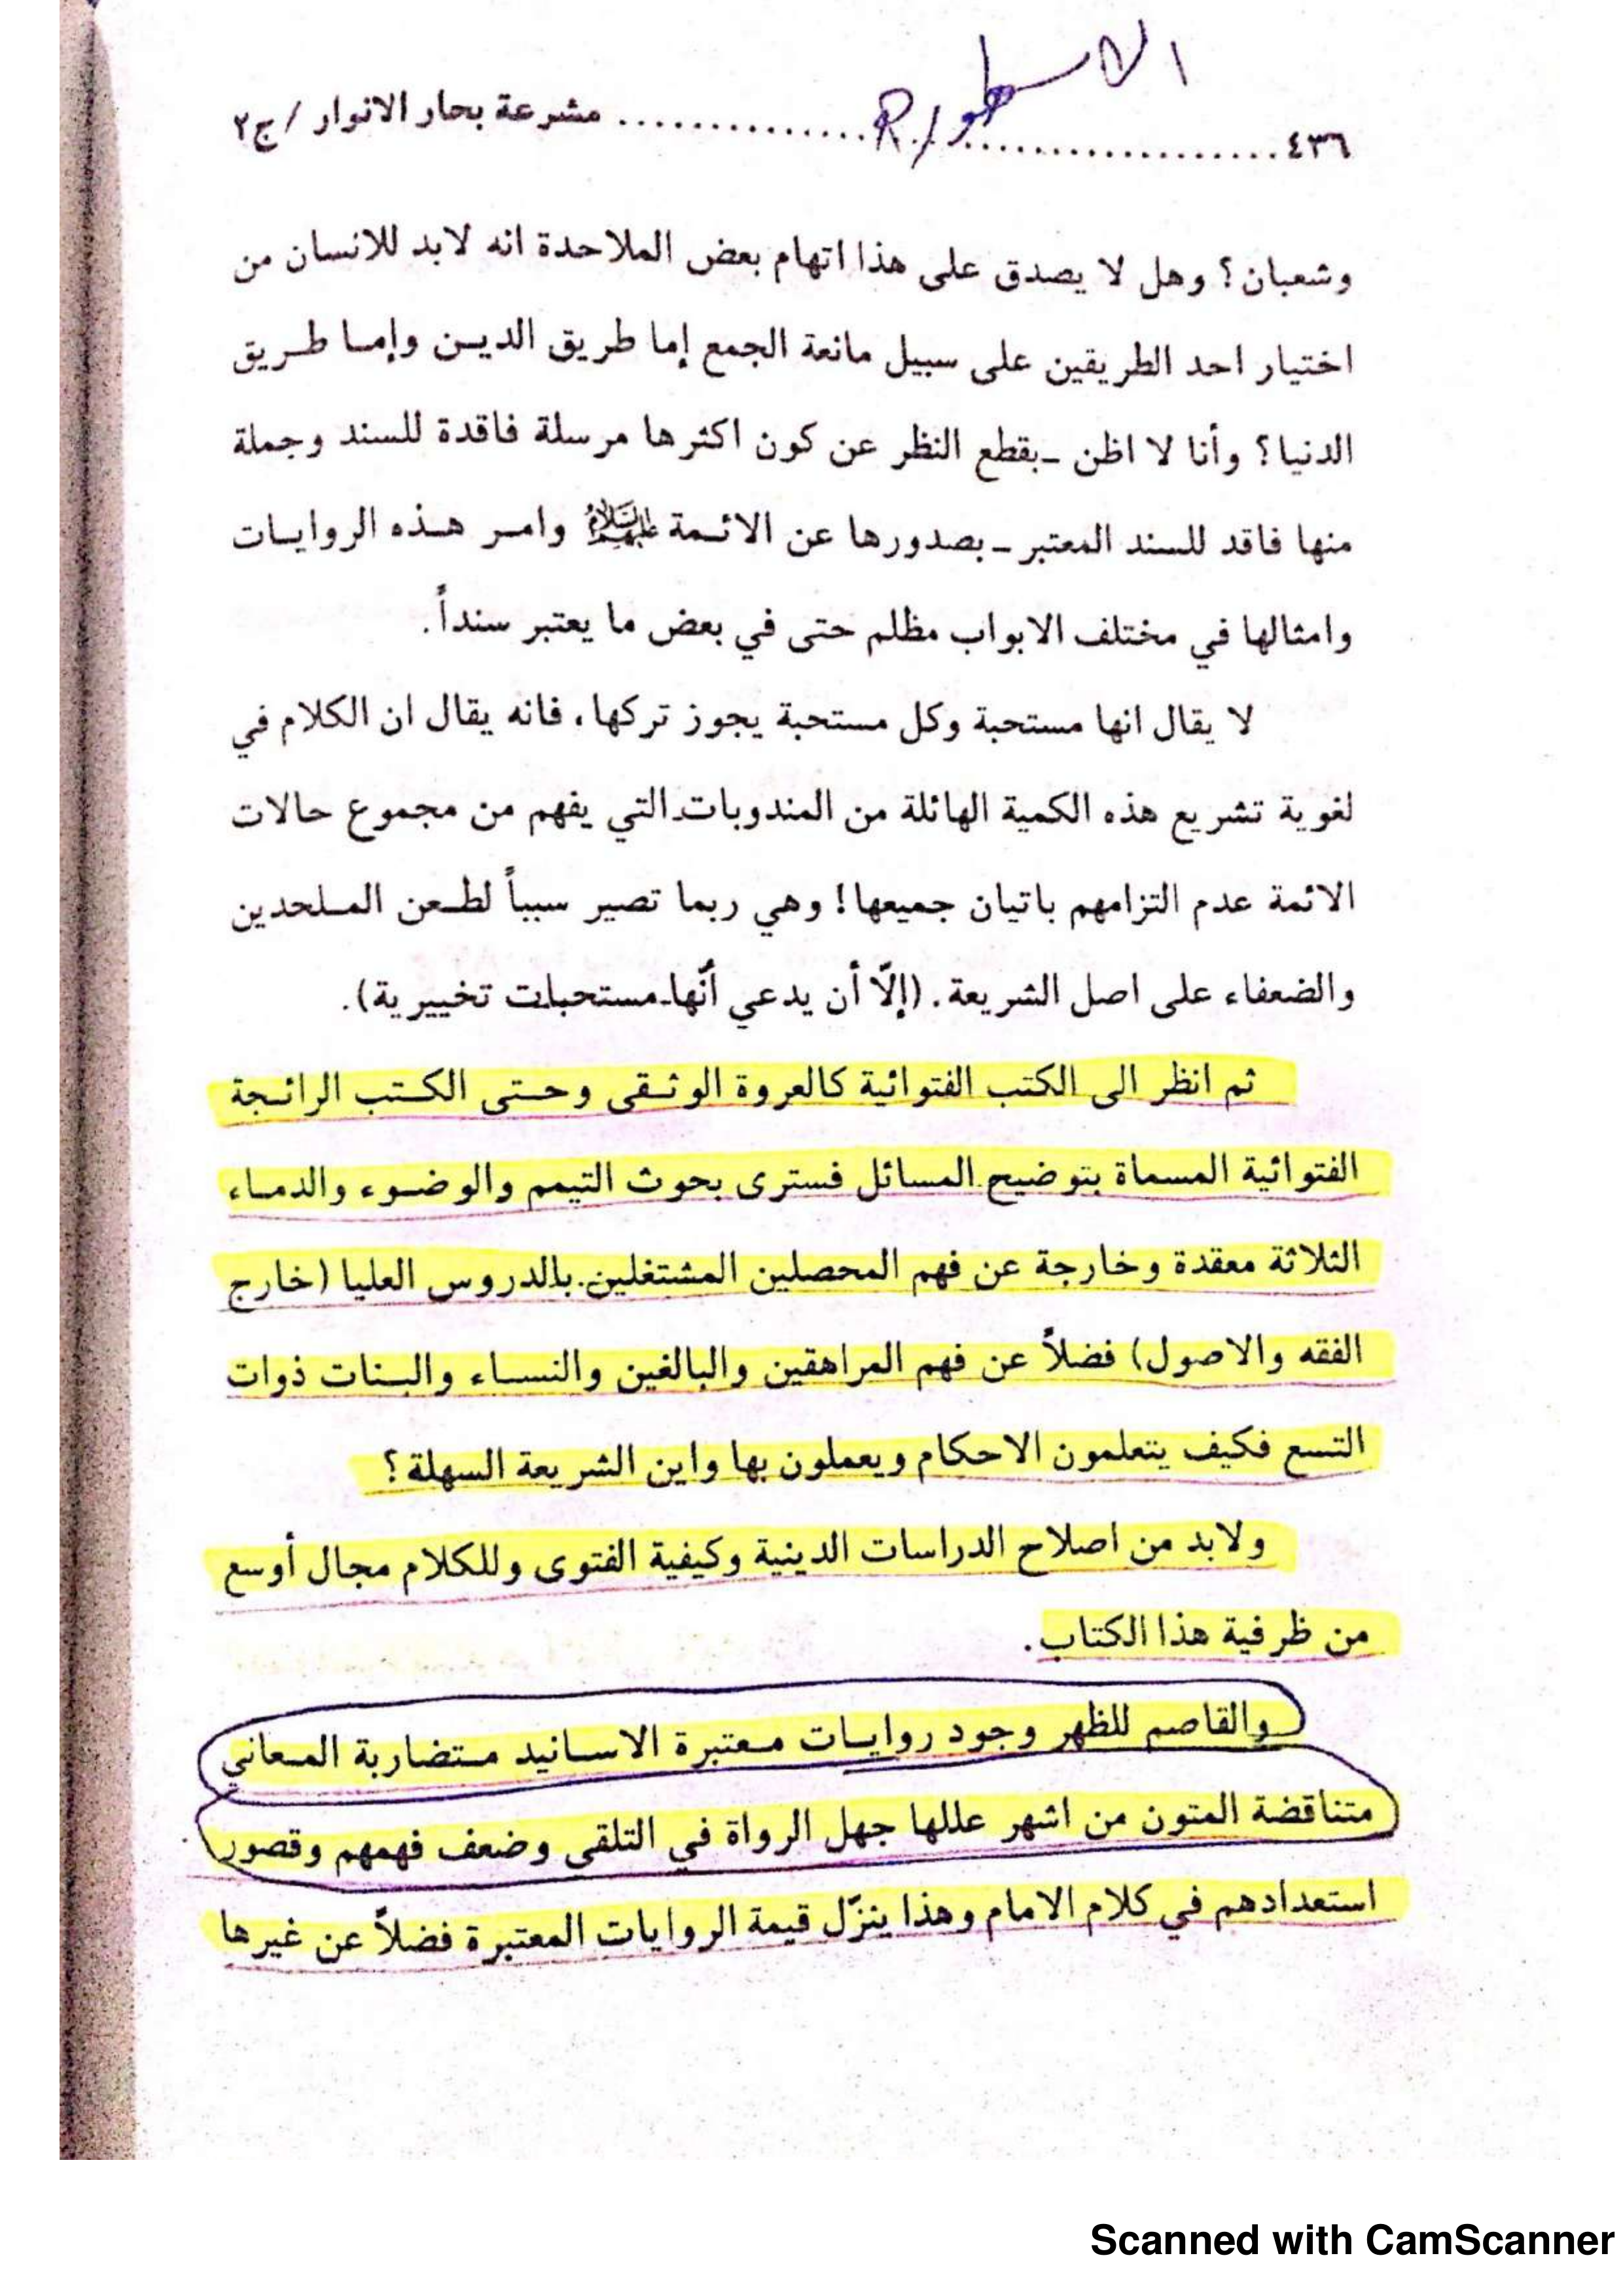 الاسطورة R.
٤٣٦ ................................ مشرعة بحار الانوار / ج٢
وشعبان؟ وهل لا يصدق على هذا اتهام بعض الملاحدة انه لابد للانسان من
اختيار احد الطريقين على سبيل مانعة الجمع إما طريق الديـن وإمـا طـريق
الدنيا؟ وأنا لا اظن ـ بقطع النظر عن كون اكثرها مرسلة فاقدة للسند وجملة
منها فاقد للسند المعتبر ـ بصدورها عن الائـمة عليهم السلام وامـر هـذه الروايـات
وامثالها في مختلف الابواب مظلم حتى في بعض ما يعتبر سنداً.
لا يقال انها مستحبة وكل مستحبة يجوز تركها، فانه يقال ان الكلام في
لغوية تشريع هذه الكمية الهائلة من المندوبات التي يفهم من مجموع حالات
الائمة عدم التزامهم باتيان جميعها! وهي ربما تصير سبباً لطـعن المـلحدين
والضعفاء على اصل الشريعة. (إلّا أن يدعي أنّها مستحبات تخييرية).
ثم انظر الى الكتب الفتوائية كالعروة الوثـقى وحـتى الكـتب الرائـجة
الفتوائية المسماة بتوضيح المسائل فسترى بحوث التيمم والوضـوء والدمـاء
الثلاثة معقدة وخارجة عن فهم المحصلين المشتغلين بالدروس العليا (خارج
الفقه والاصول) فضلاً عن فهم المراهقين والبالغين والنسـاء والبـنات ذوات
التسع فكيف يتعلمون الاحكام ويعملون بها واين الشريعة السهلة؟
ولابد من اصلاح الدراسات الدينية وكيفية الفتوى وللكلام مجال أوسع
من ظرفية هذا الكتاب.
والقاصم للظهر وجود روايـات مـعتبرة الاسـانيد مـتضاربة المـعاني
متناقضة المتون من اشهر عللها جهل الرواة في التلقي وضعف فهمهم وقصور
استعدادهم في كلام الامام وهذا ينزّل قيمة الروايات المعتبرة فضلاً عن غيرها
Scanned with CamScanner